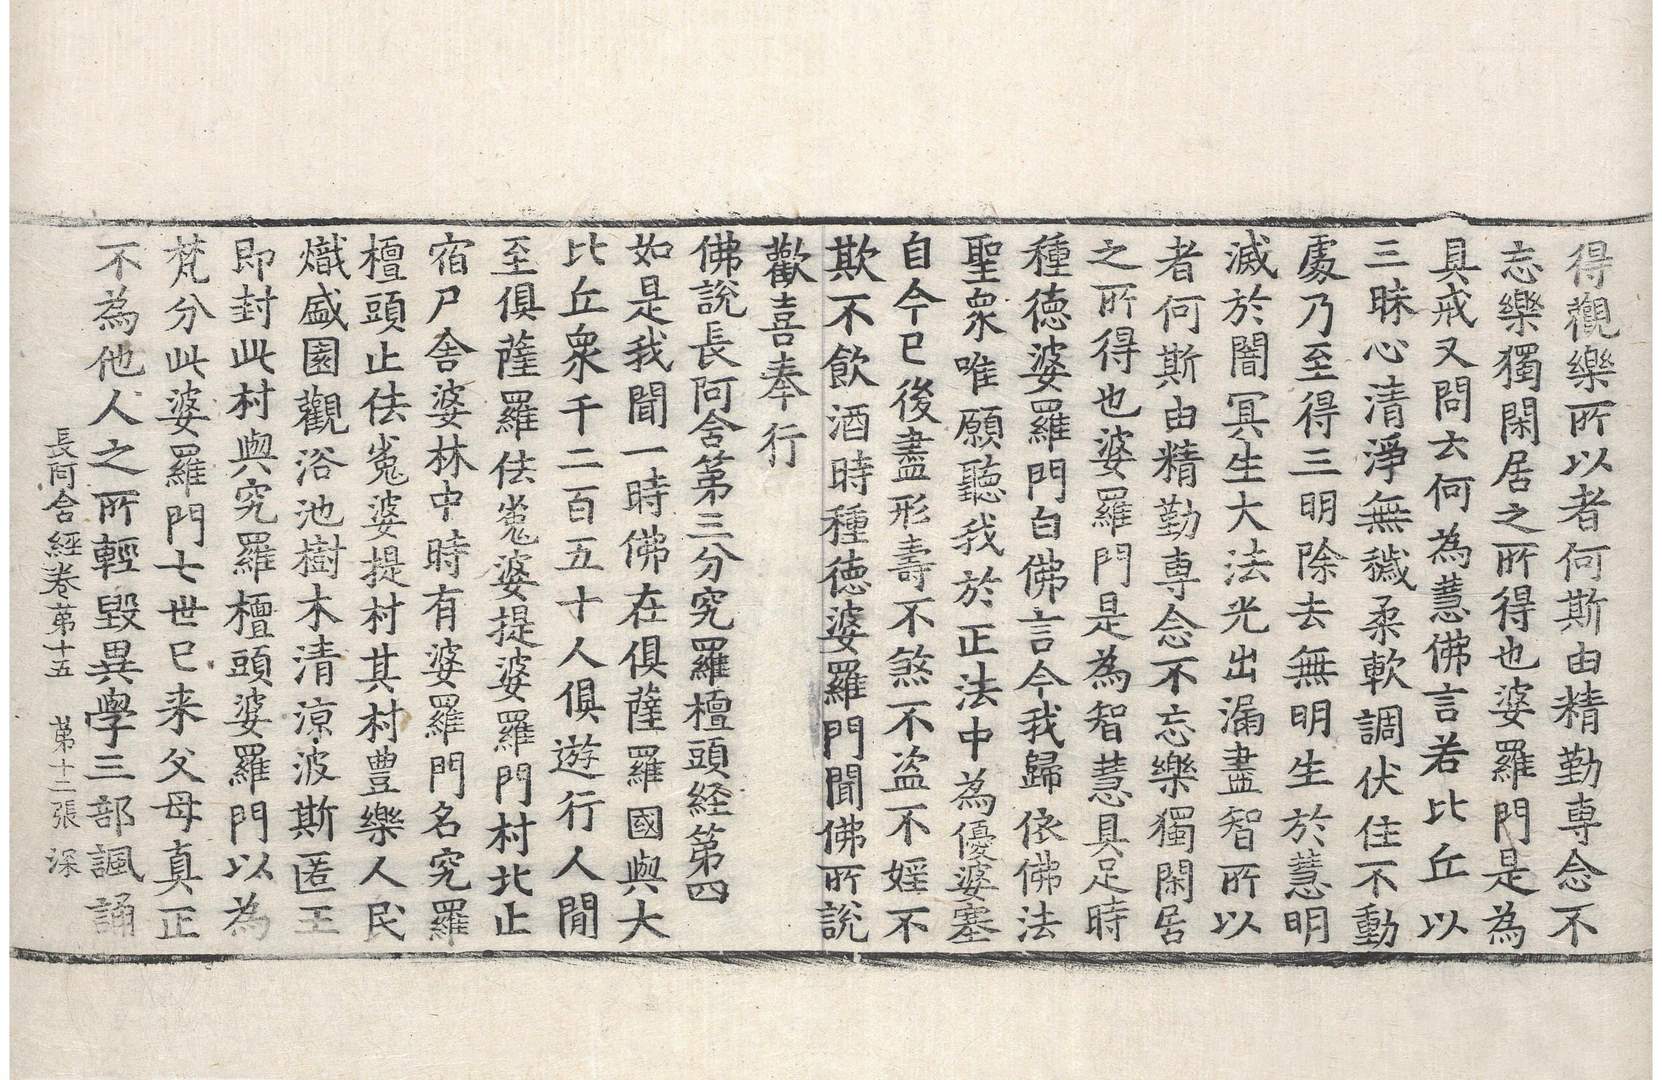 得觀樂所以者何斯由精勤専念不
志樂獨閑居之所得也婆羅門是為
具戒又問云何為慧佛言若比丘以
三昧心清淨無穢柔軟調伏住不動
處乃至得三明除去無明生於慧明
滅於闇冥生大法光出漏盡智所以
者何斯由精勤専念不忘樂獨閑居
之所得也婆羅門是為智慧具足時
種德婆羅門白佛言今我歸依佛法
聖衆唯願聽我於正法中為優婆塞
自今已後盡形壽不煞不盜不婬不
欺不飲酒時種德婆羅門聞佛所說
歡喜奉行
佛說長阿含第三分究羅檀頭経第四
如是我聞一時佛在俱薩羅國與大
比丘衆千二百五十人俱遊行人間
至俱薩羅佉㝹婆提婆羅門村北止
宿尸舍婆林中時有婆羅門名究羅
檀頭止佉㝹婆提村其村豊樂人民
熾盛園觀浴池樹木清涼波斯匿王
即封此村與究羅檀頭婆羅門以為
梵分此婆羅門七世已来父母真正
不為他人之所輕毀異學三部諷誦
長阿含経卷苐十五 苐十二張 深